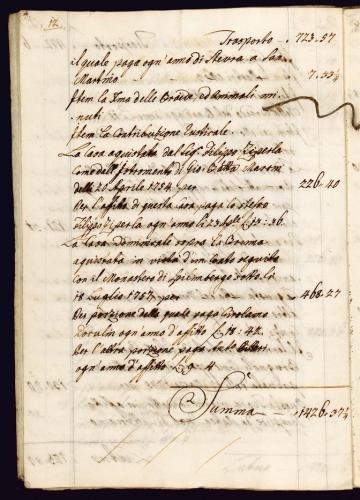 12
Trasporto - 723-57
il quale paga ogn'anno di Stevra a San
Martino 7.33½
Item la Xma delle Biade, ed Animali mi
nuti
Item la Contribuzione Rusticale
La Casa aquistata del Sigr Filippo Ziperla
Come dall'Istromento di Gio: Batta Marani
delli 20 Aprile 1754 per 226-40
Per l'affitto di questa Casa paga lo stesso
Filippo Ziperla ogn'anno li 23 Aple £ 13:36
La Casa dominicale sopra la
aquistata in virtù d'un Costo seguito
con il Monastero di Spilimbergo sotto li
18 Luglio 1757 per 468-27
Per porzione della quale paga Girolamo
ogn'anno d'affitto £ 18:42
Per l'altra porzione paga Anto
ogn'anno d'affitto £ 9 4
Summa - 1426.37½